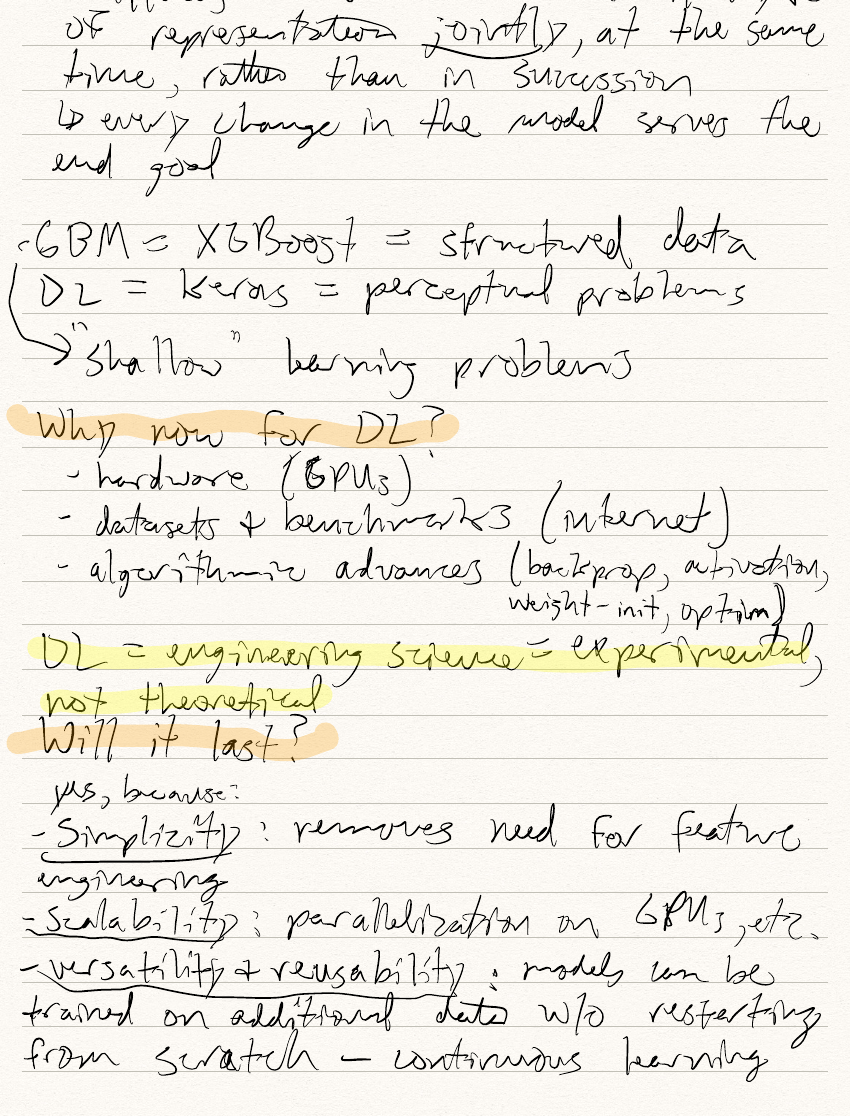 of representation jointly, at the same
time, rather than in succession
↳ every change in the model serves the
end goal
- GBM = XGBoost = structured data
DL = Keras = perceptual problems
"shallow" learning problems
Why now for DL?
- hardware (GPUs)
- datasets + benchmarks (internet)
- algorithmic advances (backprop, activation,
weight-init, optim)
DL = engineering science = experimental,
not theoretical
Will it last?
yes, because:
- Simplicity: removes need for feature
engineering
- Scalability: parallelization on GPUs, etc.
- versatility + reusability: models can be
trained on additional data w/o restarting
from scratch - continuous learning